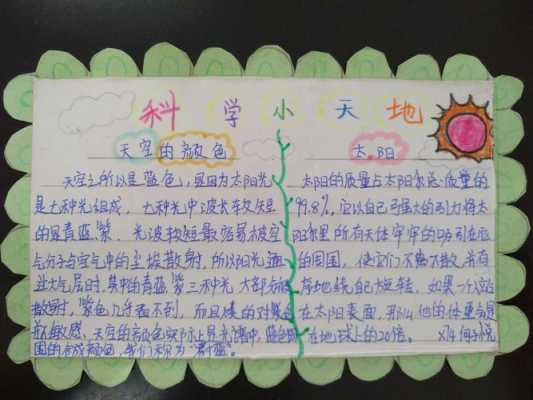 科学小天地
天空的颜色
天空之所以是蓝色,是因为太阳光
是七种光组成,七种光中波长较短
的是青蓝紫,光波较短最容易被空
气分子与空气中的尘埃散射,所以阳光通
过大气层时,其中的青蓝紫三种光大部分被
散射,紫色几乎看不到,而且人的对紫色
不敏感,天空的颜色实际上是光谱中,蓝色
围的合成颜色,我们称为"青蓝"。
太阳
太阳的质量占太阳系总质量的
99.8%,它以自己强大的引力将太
阳系里所有天体牢牢的吸引在它
的周围,使它们不离不散,并有
序地绕自己旋转,如果一个人站
在太阳表面,那么他的体重是
在地球上的20倍。